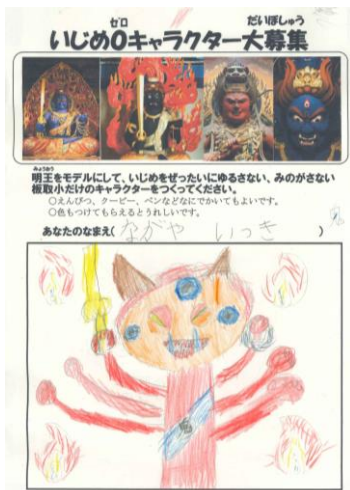 ゼロ だいぼしゅう
いじめ0キャラクター大募集
みょうおう
明王をモデルにして、いじめをぜったいにゆるさない、みのがさない
板取小だけのキャラクターをつくってください。
○えんぴつ、クーピー、ペンなどなにでかいてもよいです。
○色もつけてもらえるとうれしいです。
あなたのなまえ(ながや いっき)